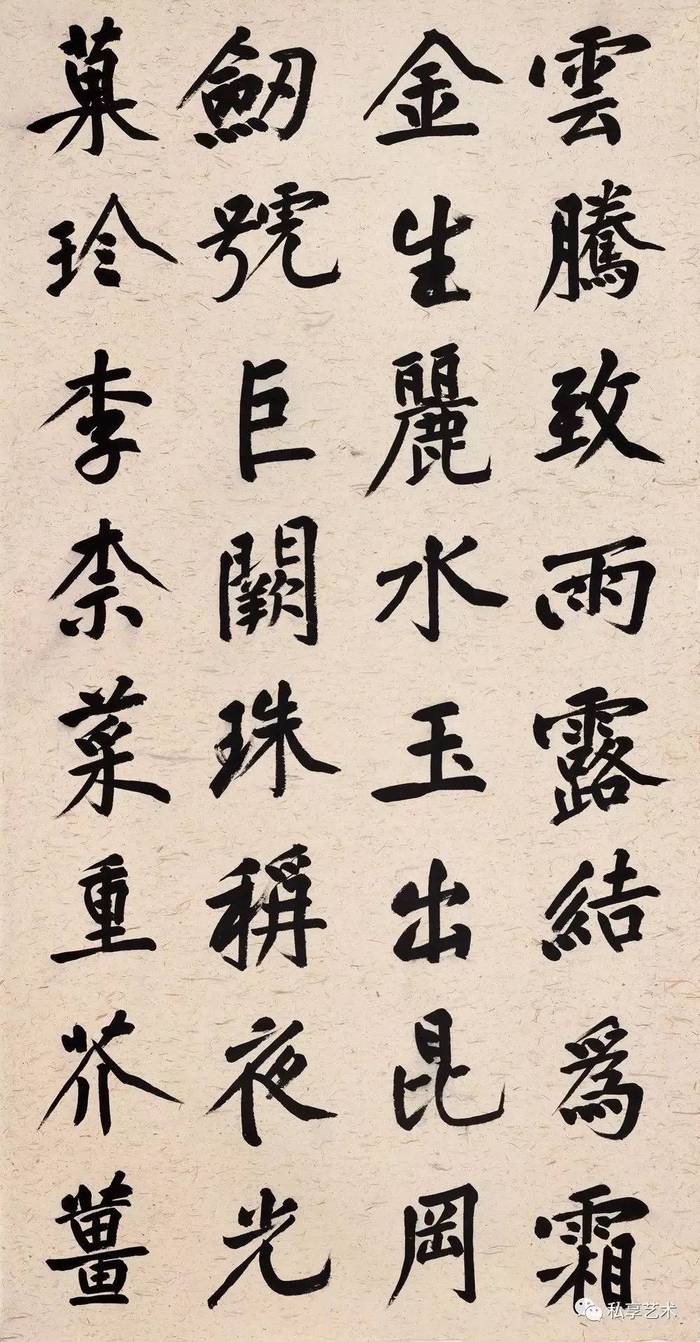 雲騰致雨露結爲霜
金生麗水玉出昆岡
劒號巨闕珠稱夜光
菓珍李柰菜重芥薑
私享艺术